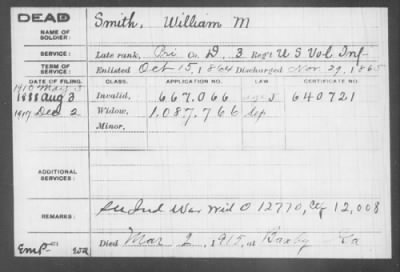 DEAD
NAME OF SOLDIER:
Smith, William M
SERVICE:
Late rank, Pri Co. D, 3 Reg't U S Vol Inf
TERM OF SERVICE:
Enlisted Oct 15, 1864 Discharged Nov. 29, 1865
DATE OF FILING. CLASS. APPLICATION NO. CERTIFICATE NO.
1888 Aug 3 Invalid, 667.066 640721
1917 Dec 2 Widow, 1,087,766
Minor,
ADDITIONAL SERVICES:
REMARKS:
See Ind War Wid O 12770, Ctf 12,008
Died Mar 2, 1915, at Baxley Ga